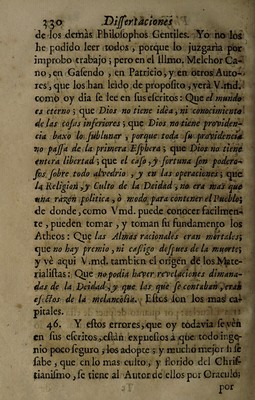 330 Dissertaciones
de los demàs Philosophos Gentiles. Yo no los
he podido leer todos, porque lo juzgaria por
improbo trabajo; pero en el Illmo. Melchor Ca-
no, en Gasendo, en Patricio, y en otros Auto-
res, que los han leido de proposito, verà V.md.
como oy dia se lee en sus escritos: Que el mundo
es eterno; que Dios no tiene idèa, ni conocimiento
de las cosas inferiores; que Dios no tiene providen-
cia baxo lo sublunar, porque toda su providencia
no passa de la primera Esphera; que Dios no tiene
entera libertad; que el caso, y fortuna son podero-
sos sobre todo alvedrio, y en las operaciones; que
la Religion, y Culto de la Deidad, no era mas que
una razon politica, ò modo para contener el Pueblo;
de donde, como V.md. puede conocer facilmen-
te, pueden tomar, y toman su fundamento los
Atheos: Que las Almas racionales eran mortales;
que no hay premio, ni castigo despues de la muerte;
y vè aqui V.md. tambien el origen de los Mate-
rialistas: Que no podia haver revelaciones dimana-
das de la Deidad, y que las que se contaban, eran
efectos de la melancòlia. Estos son los mas ca-
pitales.
46. Y estos errores, que oy todavia se vèn
en sus escritos, están expuestos à que todo inge-
nio poco seguro, los adopte; y mucho mejor si se
sabe, que en lo mas culto, y florido del Chris-
tianismo, se tiene al Autor de ellos por Oraculo:
por